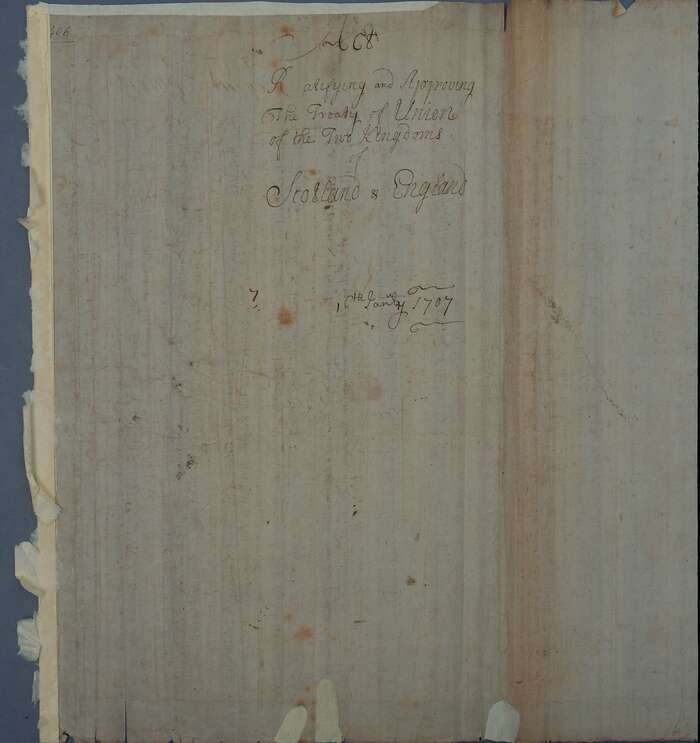 Act
Ratifying and Approving
The Treaty of Union
of the Two Kingdoms
of
Scotland & England
7
16th January 1707